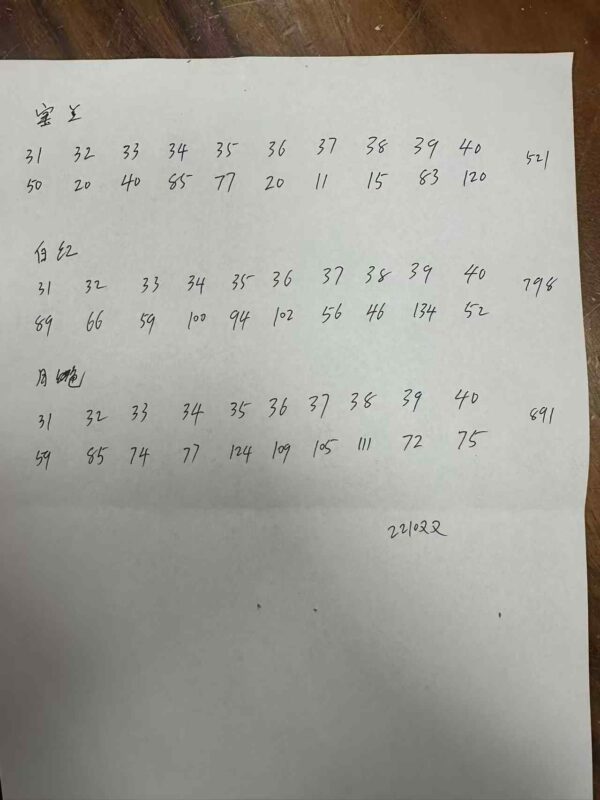 兰
31 32 33 34 35 36 37 38 39 40 521
50 20 40 85 77 20 11 15 83 120
白红
31 32 33 34 35 36 37 38 39 40 798
89 66 59 100 94 102 56 46 134 52
月
31 32 33 34 35 36 37 38 39 40 891
59 85 74 77 124 109 105 111 72 75
2210双